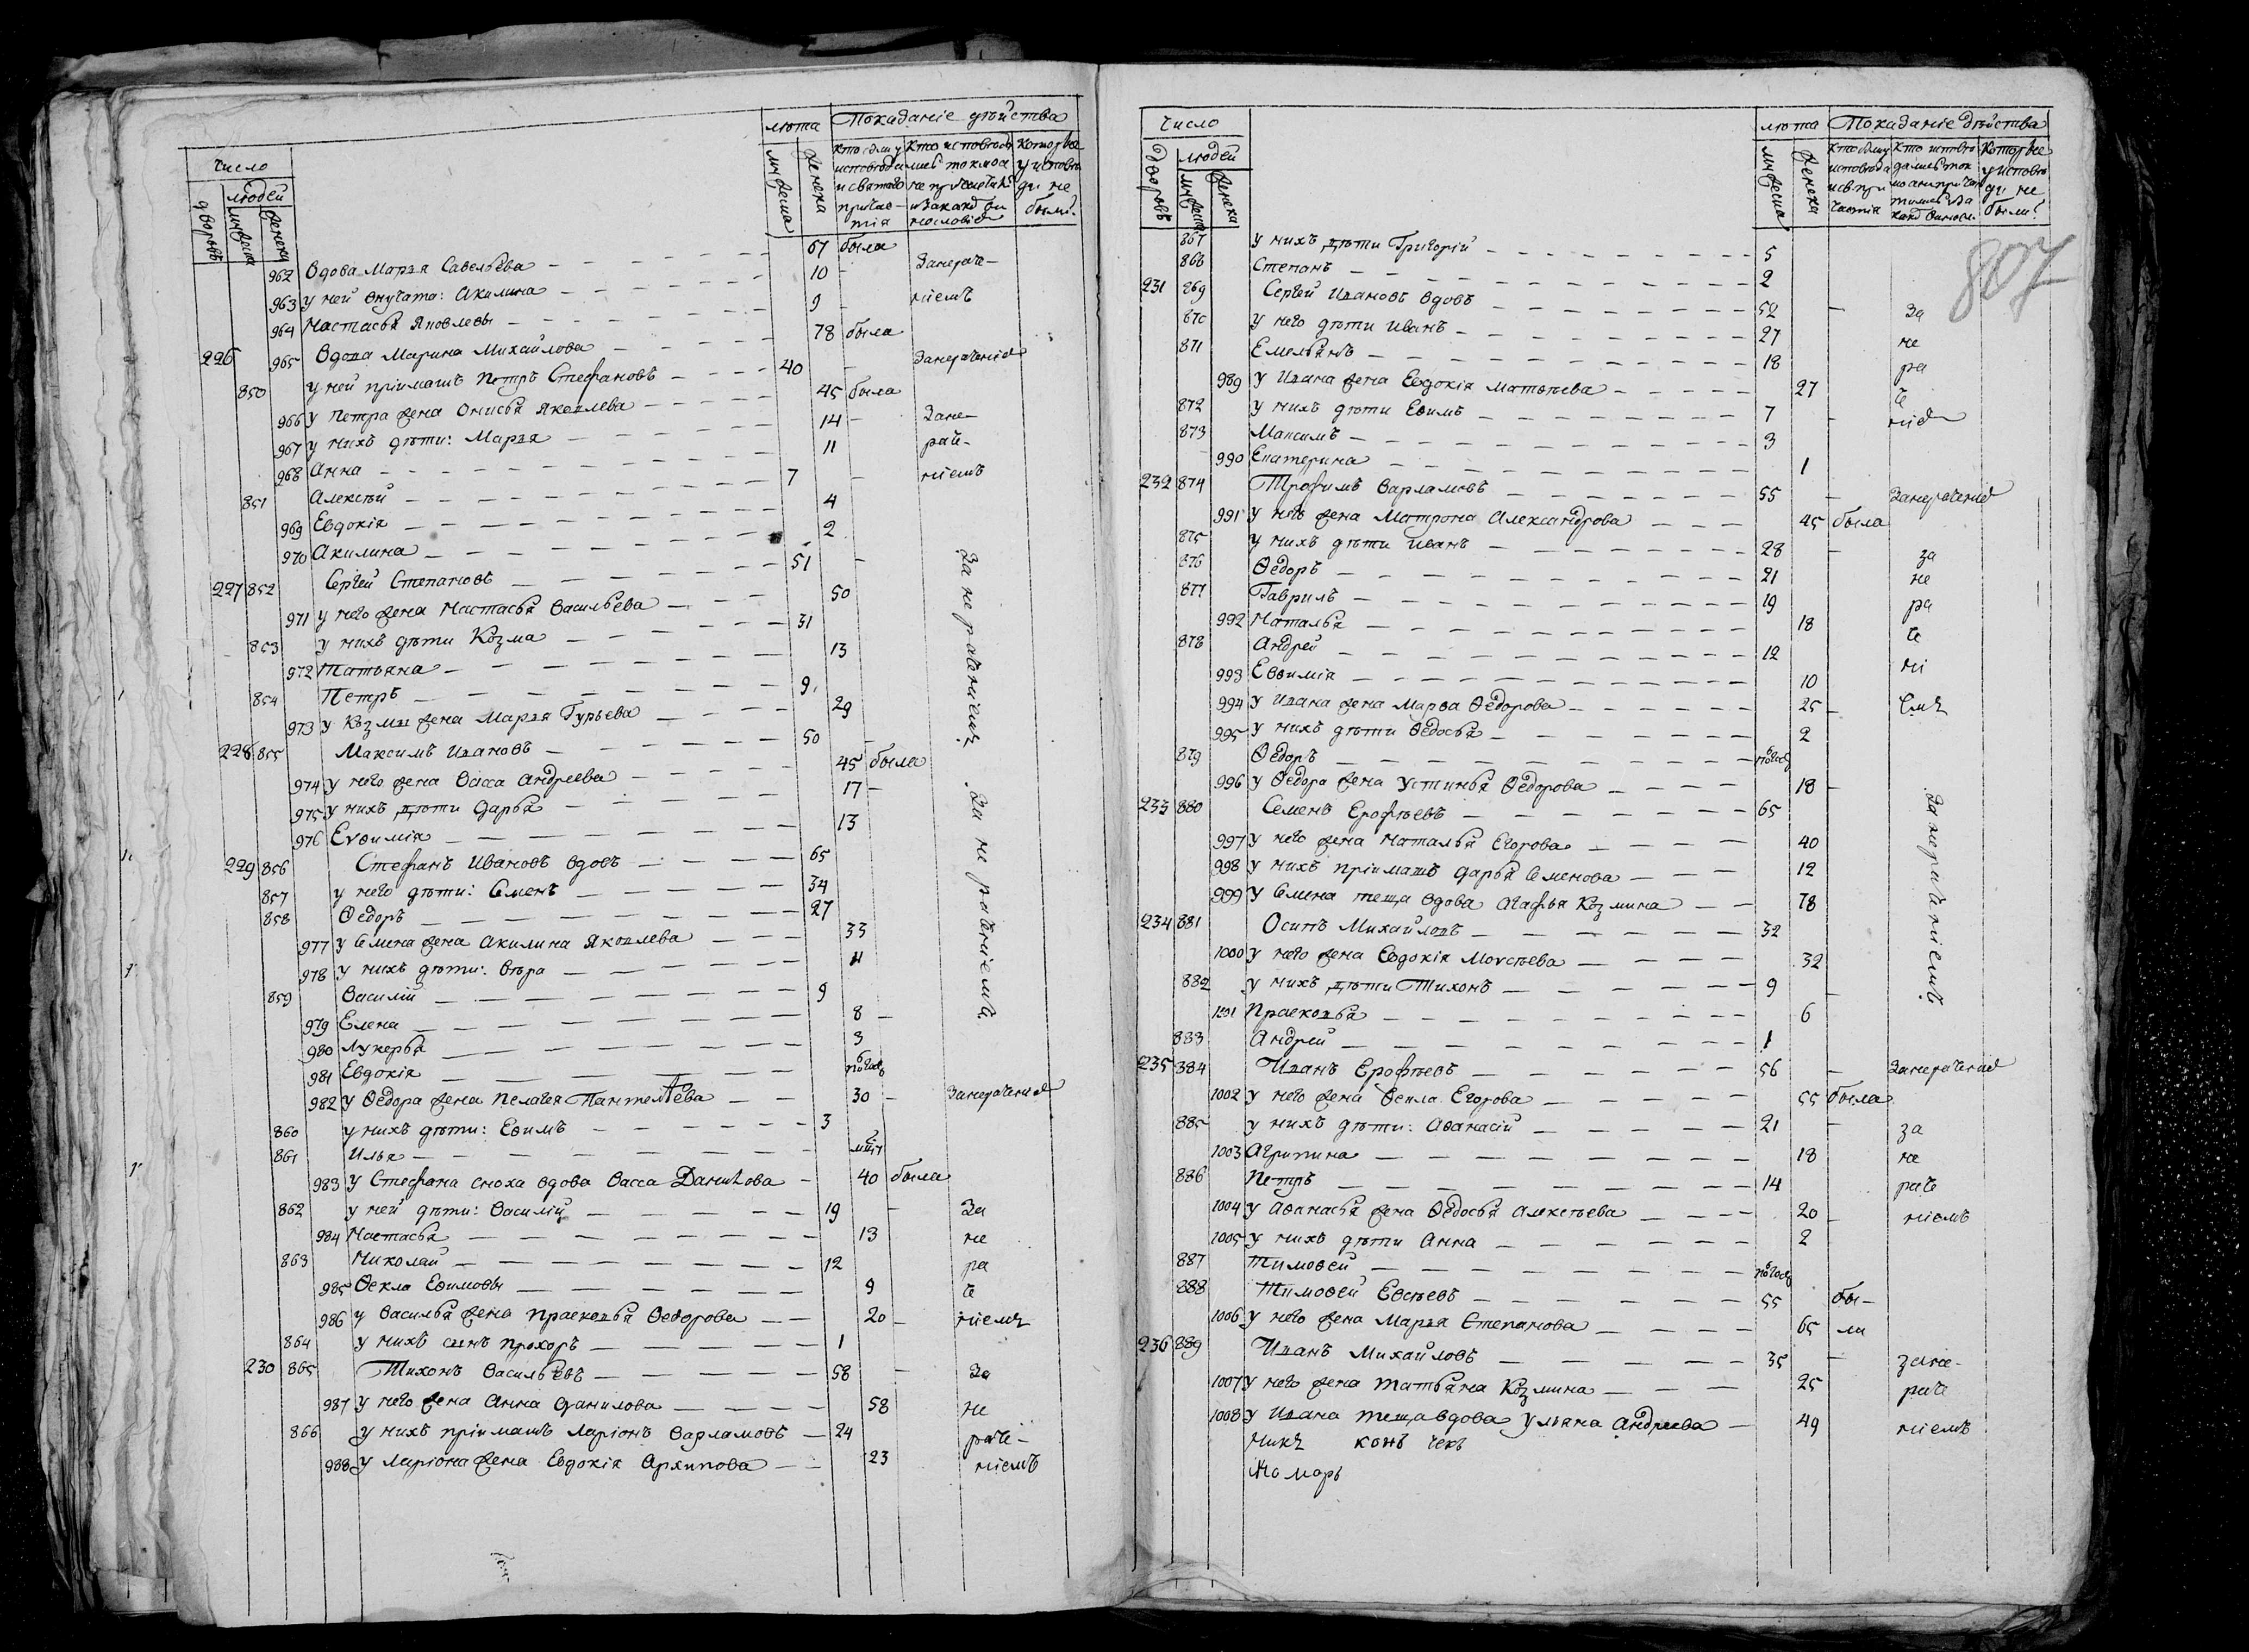 Число
людей
дворовъ
мужеска
женска
лѣта
мужеска
женска
Показаніе дѣйства
962 Вдова Марѳа Савельева 67 была
963 у ней внучата: Акилина 10 Занераче-
964 Настасья Яковлевы 9 ніемъ
226 965 Вдова Марина Михайлова 78 была
850 у ней пріимышъ Петръ Стефановъ 40 Занераченіе
966 у Петра жена Онисья Яковлева 45 была
967 у нихъ дѣти: Марѳа 14 Зане-
968 Анна 11 раче-
851 Алексѣй 7 ніемъ
969 Евдокія 4
970 Акилина 2
227 852 Сергей Степановъ 51
971 у него жена Настасья Васильева 50
853 у нихъ дѣти Козма 31
972 Татьяна 13
854 Петръ 9
973 у Козмы жена Марѳа Гурьева 29
За нераченіемъ
228 855 Максимъ Ивановъ 50
974 у него жена Васса Андреева 45 была
975 у нихъ дѣти Дарья 17
976 Евѳимія 13
229 856 Стефанъ Ивановъ вдовъ 65
857 у него дѣти: Семенъ 34
858 Ѳедоръ 27
977 у Семена жена Акилина Яковлева 33
978 у нихъ дѣти: Вѣра 11
859 Василій 9
979 Елена 8
980 Лукерья 3
981 Евдокія полгод
За не раченіемъ
982 у Ѳедора жена Пелагея Пантелѣева 30 Занераченіе
860 у нихъ дѣти: Еѳимъ 3
861 Илья
983 у Стефана сноха вдова Васса Данилова 40 была
862 у ней дѣти: Василій 19 За
984 Настасья 13 не
863 Николай 12 ра
985 Ѳекла Еѳимовы 9 че
986 у Василья жена Прасковья Ѳедорова 20 ніемъ
864 у нихъ сынъ Прохоръ 1
230 865 Тихонъ Васильевъ 58 За
987 у него жена Анна Данилова 58 не
866 у нихъ пріимышъ Ларіонъ Варламовъ 24 раче-
988 у Ларіона жена Евдокія Архипова 23 ніемъ
Число
людей
дворовъ
мужеска
женска
лѣта
мужеска
женска
Показаніе дѣйства
807
867 у нихъ дѣти Григорій 5
868 Степанъ 2
231 869 Сергей Ивановъ вдовъ 52 За
870 у него дѣти Иванъ 27 не
871 Емельянъ 18 ра
989 у Ивана жена Евдокія Матвѣева 27 че
872 у нихъ дѣти Еѳимъ 7 ніе
873 Максимъ 3
990 Екатерина 1
232 874 Трофимъ Варламовъ 55 Занераченіе
991 у него жена Матрона Александрова 45 была
875 у нихъ дѣти Иванъ 28 за
876 Ѳедоръ 21 не
877 Гаврилъ 19 ра
992 Наталья 18 че
878 Андрей 12 ні
993 Евѳимія 10
994 у Ивана жена Марѳа Ѳедорова 25 емъ
995 у нихъ дѣти Ѳедосья 2
879 Ѳедоръ полгод
996 у Ѳедора жена Устинья Ѳедорова 18
233 880 Семенъ Ерофѣевъ 65
997 у него жена Наталья Егорова 40
998 у нихъ пріимышъ Дарья Семенова 12
999 у Семена теща вдова Агафья Козмина 78
234 881 Осипъ Михайловъ 32
1000 у него жена Евдокія Моѵсѣева 32
882 у нихъ дѣти Тихонъ 9
1001 Прасковья 6
883 Андрей 1
За нераченіемъ
235 884 Иванъ Ерофѣевъ 56 Занераченіе
1002 у него жена Ѳекла Егорова 55 была
885 у нихъ дѣти: Аѳанасій 21 за
1003 Агрипина 18 не
886 Петръ 14 раче
1004 у Аѳанасья жена Ѳедосья Алексѣева 20 ніемъ
1005 у нихъ дѣти Анна 2
887 Тимоѳей полгод
888 Тимоѳей Евсѣевъ 55 бы-
1006 у него жена Марѳа Степанова 65 ли
236 889 Иванъ Михайловъ 35 зане-
1007 у него жена Татьяна Козмина 25 раче
1008 у Ивана теща вдова Ульяна Андреева 49 ніемъ
Помарь